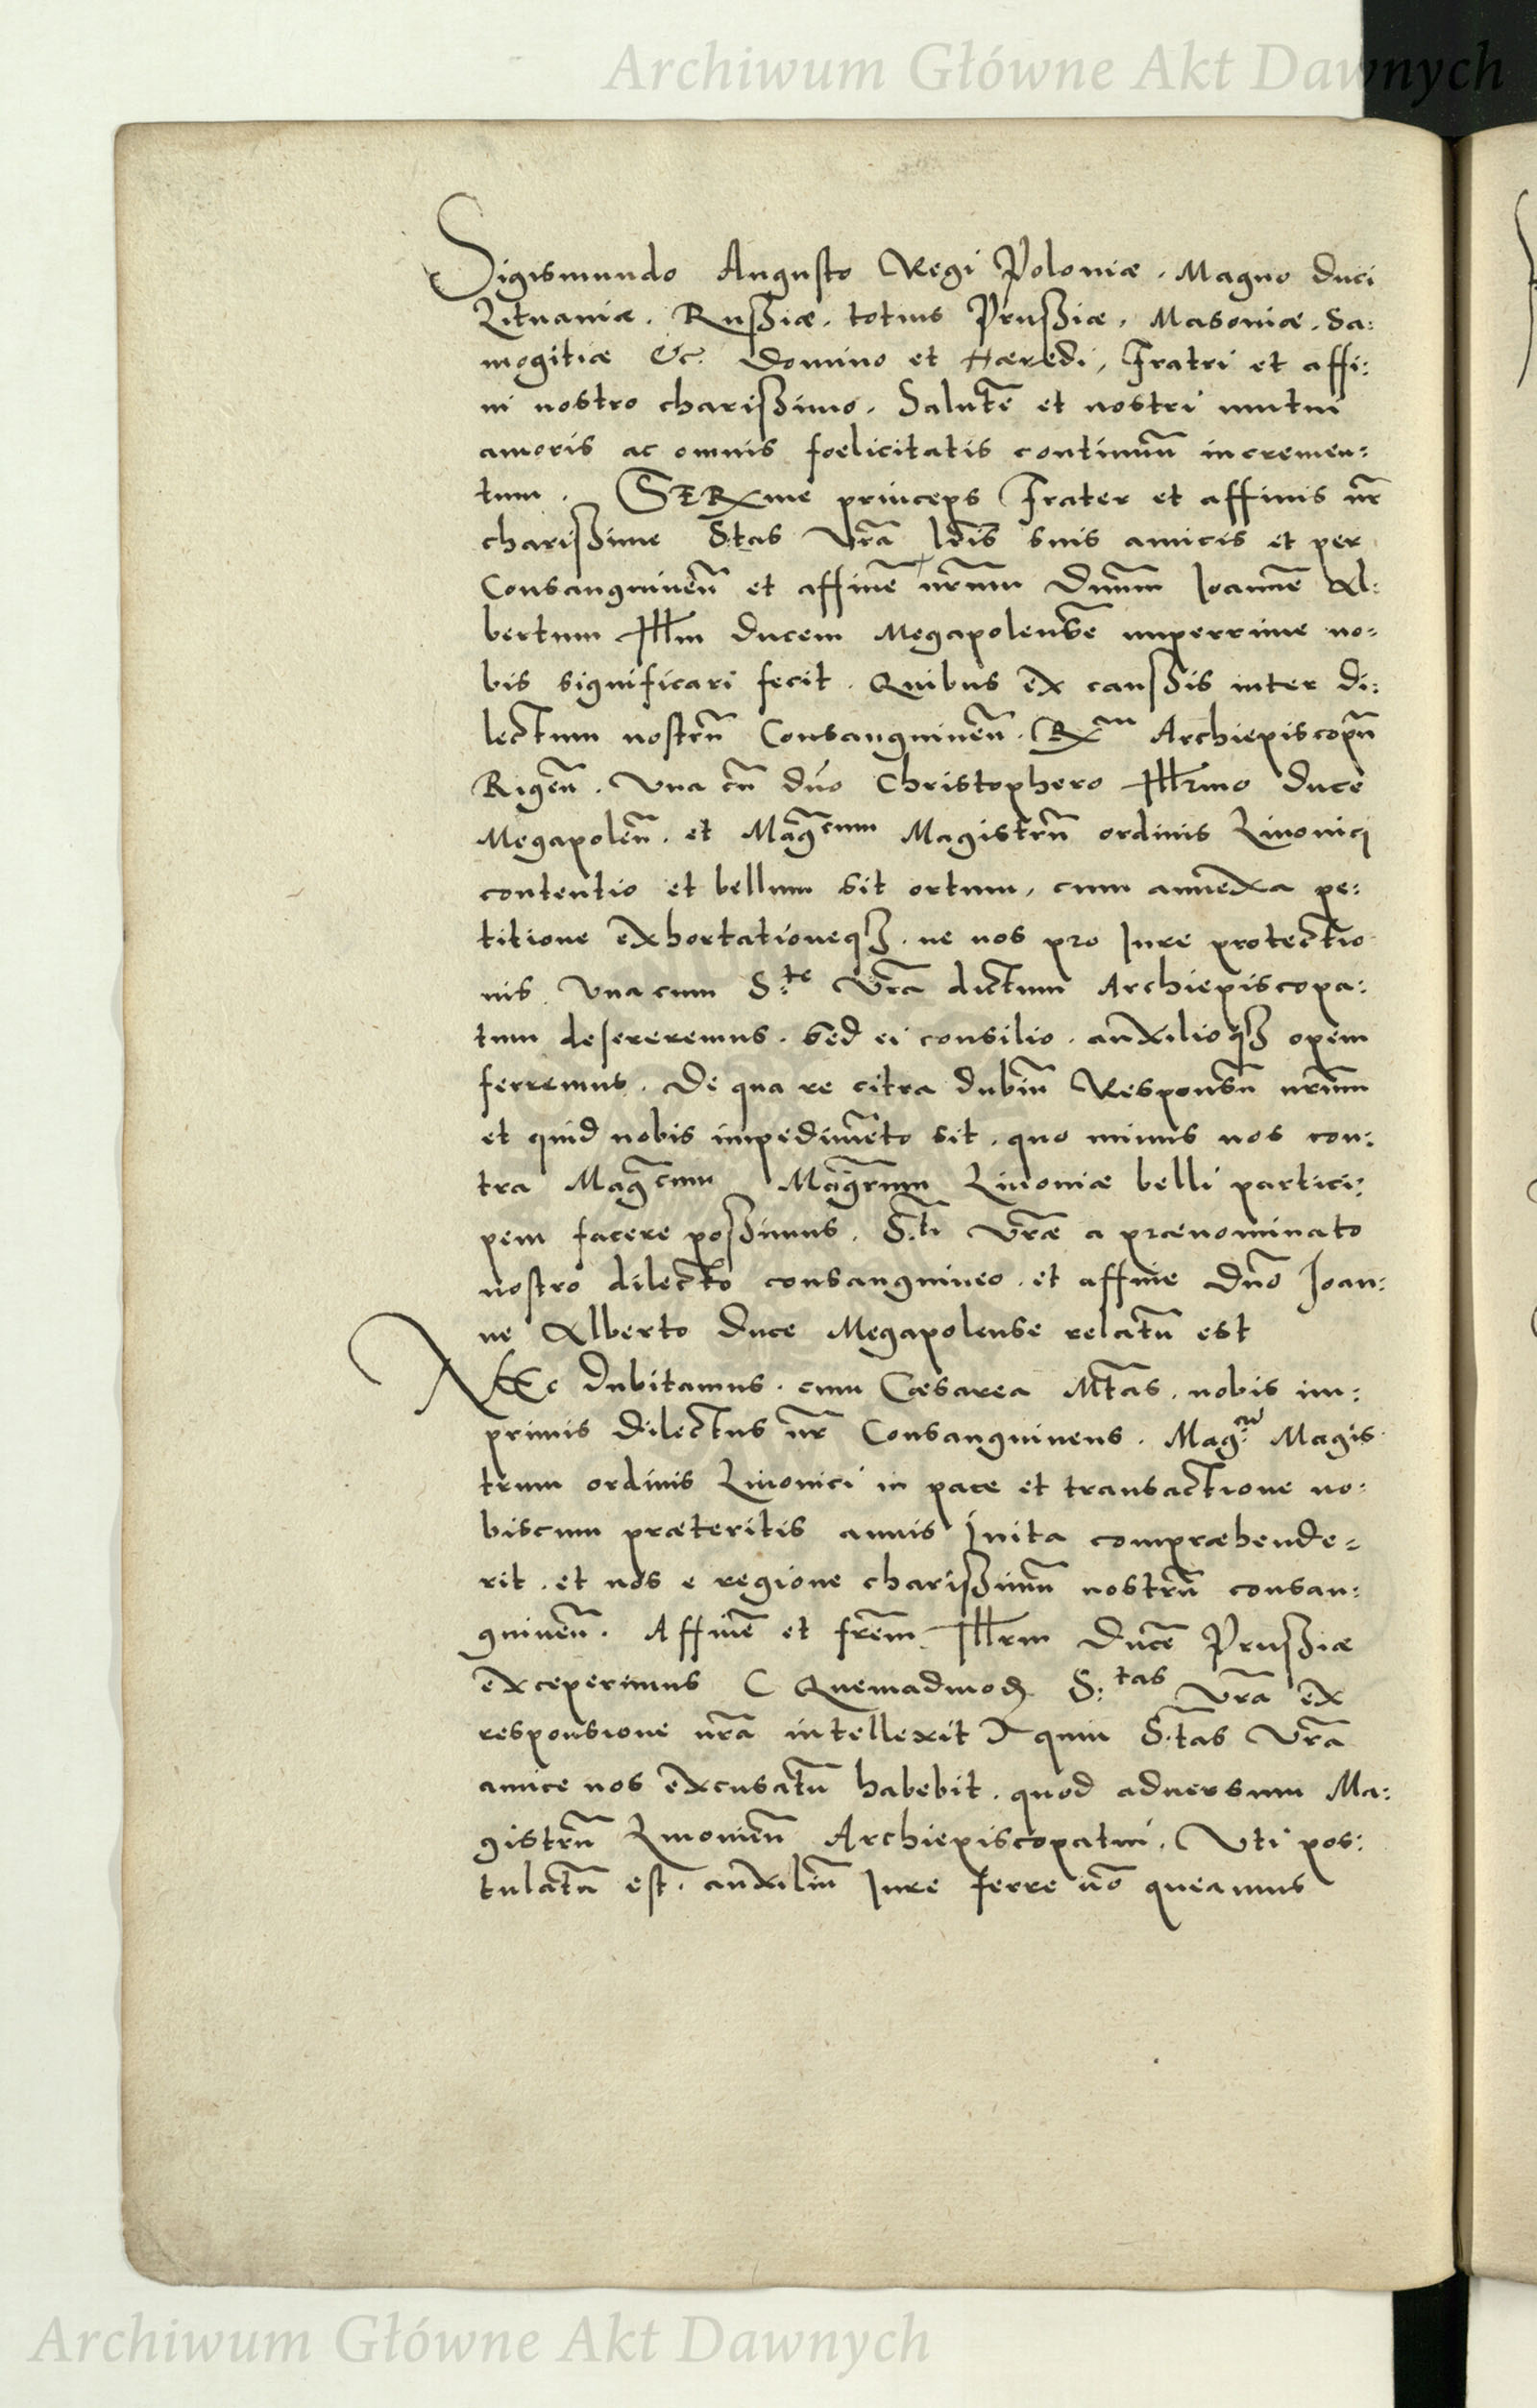 Archiwum Główne Akt Dawnych
Sigismundo Augusto Regi Poloniæ. Magno Duci
Lituaniæ. Rußiæ. totius Prußiæ, Masoniæ. Sa:
mogitiæ &c. Domino et Hæredi, Fratri et affi:
ni nostro charißimo. Salutē et nostri mutui
amoris ac omnis foelicitatis continuū incremen:
tum. SERme princeps Frater et affinis nr̄
charißime S.tas Vr̄a lr̄is suis amicis et per
Consanguineū et affinē nr̄um Dn̄um Ioannē Al:
bertum Illm Ducem Megapolensē nuperrime no:
bis significari fecit. Quibus ex caußis inter di:
lectum nostrū Consanguineū. Rm̄ Archiepiscopū
Rigeñ. Vna cū dn̄o Christophero Illrmo Duce
Megapoleñ. et Mag̃cum Magistrū ordinis Liuonici
contentio et bellum sit ortum, cum annexa pe:
titione exhortationeqꝫ. ne nos pro Iure protectio
nis Vna cum S.te Vr̄a dictum Archiepiscopa:
tum desereremus. sed ei consilio. auxilioqꝫ opem
ferremus. De qua re citra dubiū Responsū nr̄um
et quid nobis impedimēto sit. quo minus nos con:
tra Mag̃cum Mag̃rum Liuoniæ belli partici:
pem facere poßimus. S.ti Vr̄æ a prænominato
nostro dilecto consanguineo. et affine Dn̄o Ioan:
ne Alberto Duce Megapolense relatū est
NEc dubitamus. cum Cæsarea Mtas. nobis im:
primis dilectus nr̄ Consanguineus. Mag:cū Magis
trum ordinis Liuonici in pace et transactione no:
biscum præteritis annis inita compræhende=
rit. et nos e regione charißimū nostrū consan:
guineū. Affinē et fr̄em Illrm Ducē Prußiæ
exceperimus ( Quemadmodꝫ S:tas Vr̄a ex
responsione nr̄a intellexit ) quin S.tas Vr̄a
amice nos excusatū habebit. quod aduersum Ma:
gistrū Liuonieñ Archiepiscopatui. Vti pos:
tulatū est. auxiliū Iure ferre nō queamus
Archiwum Główne Akt Dawnych